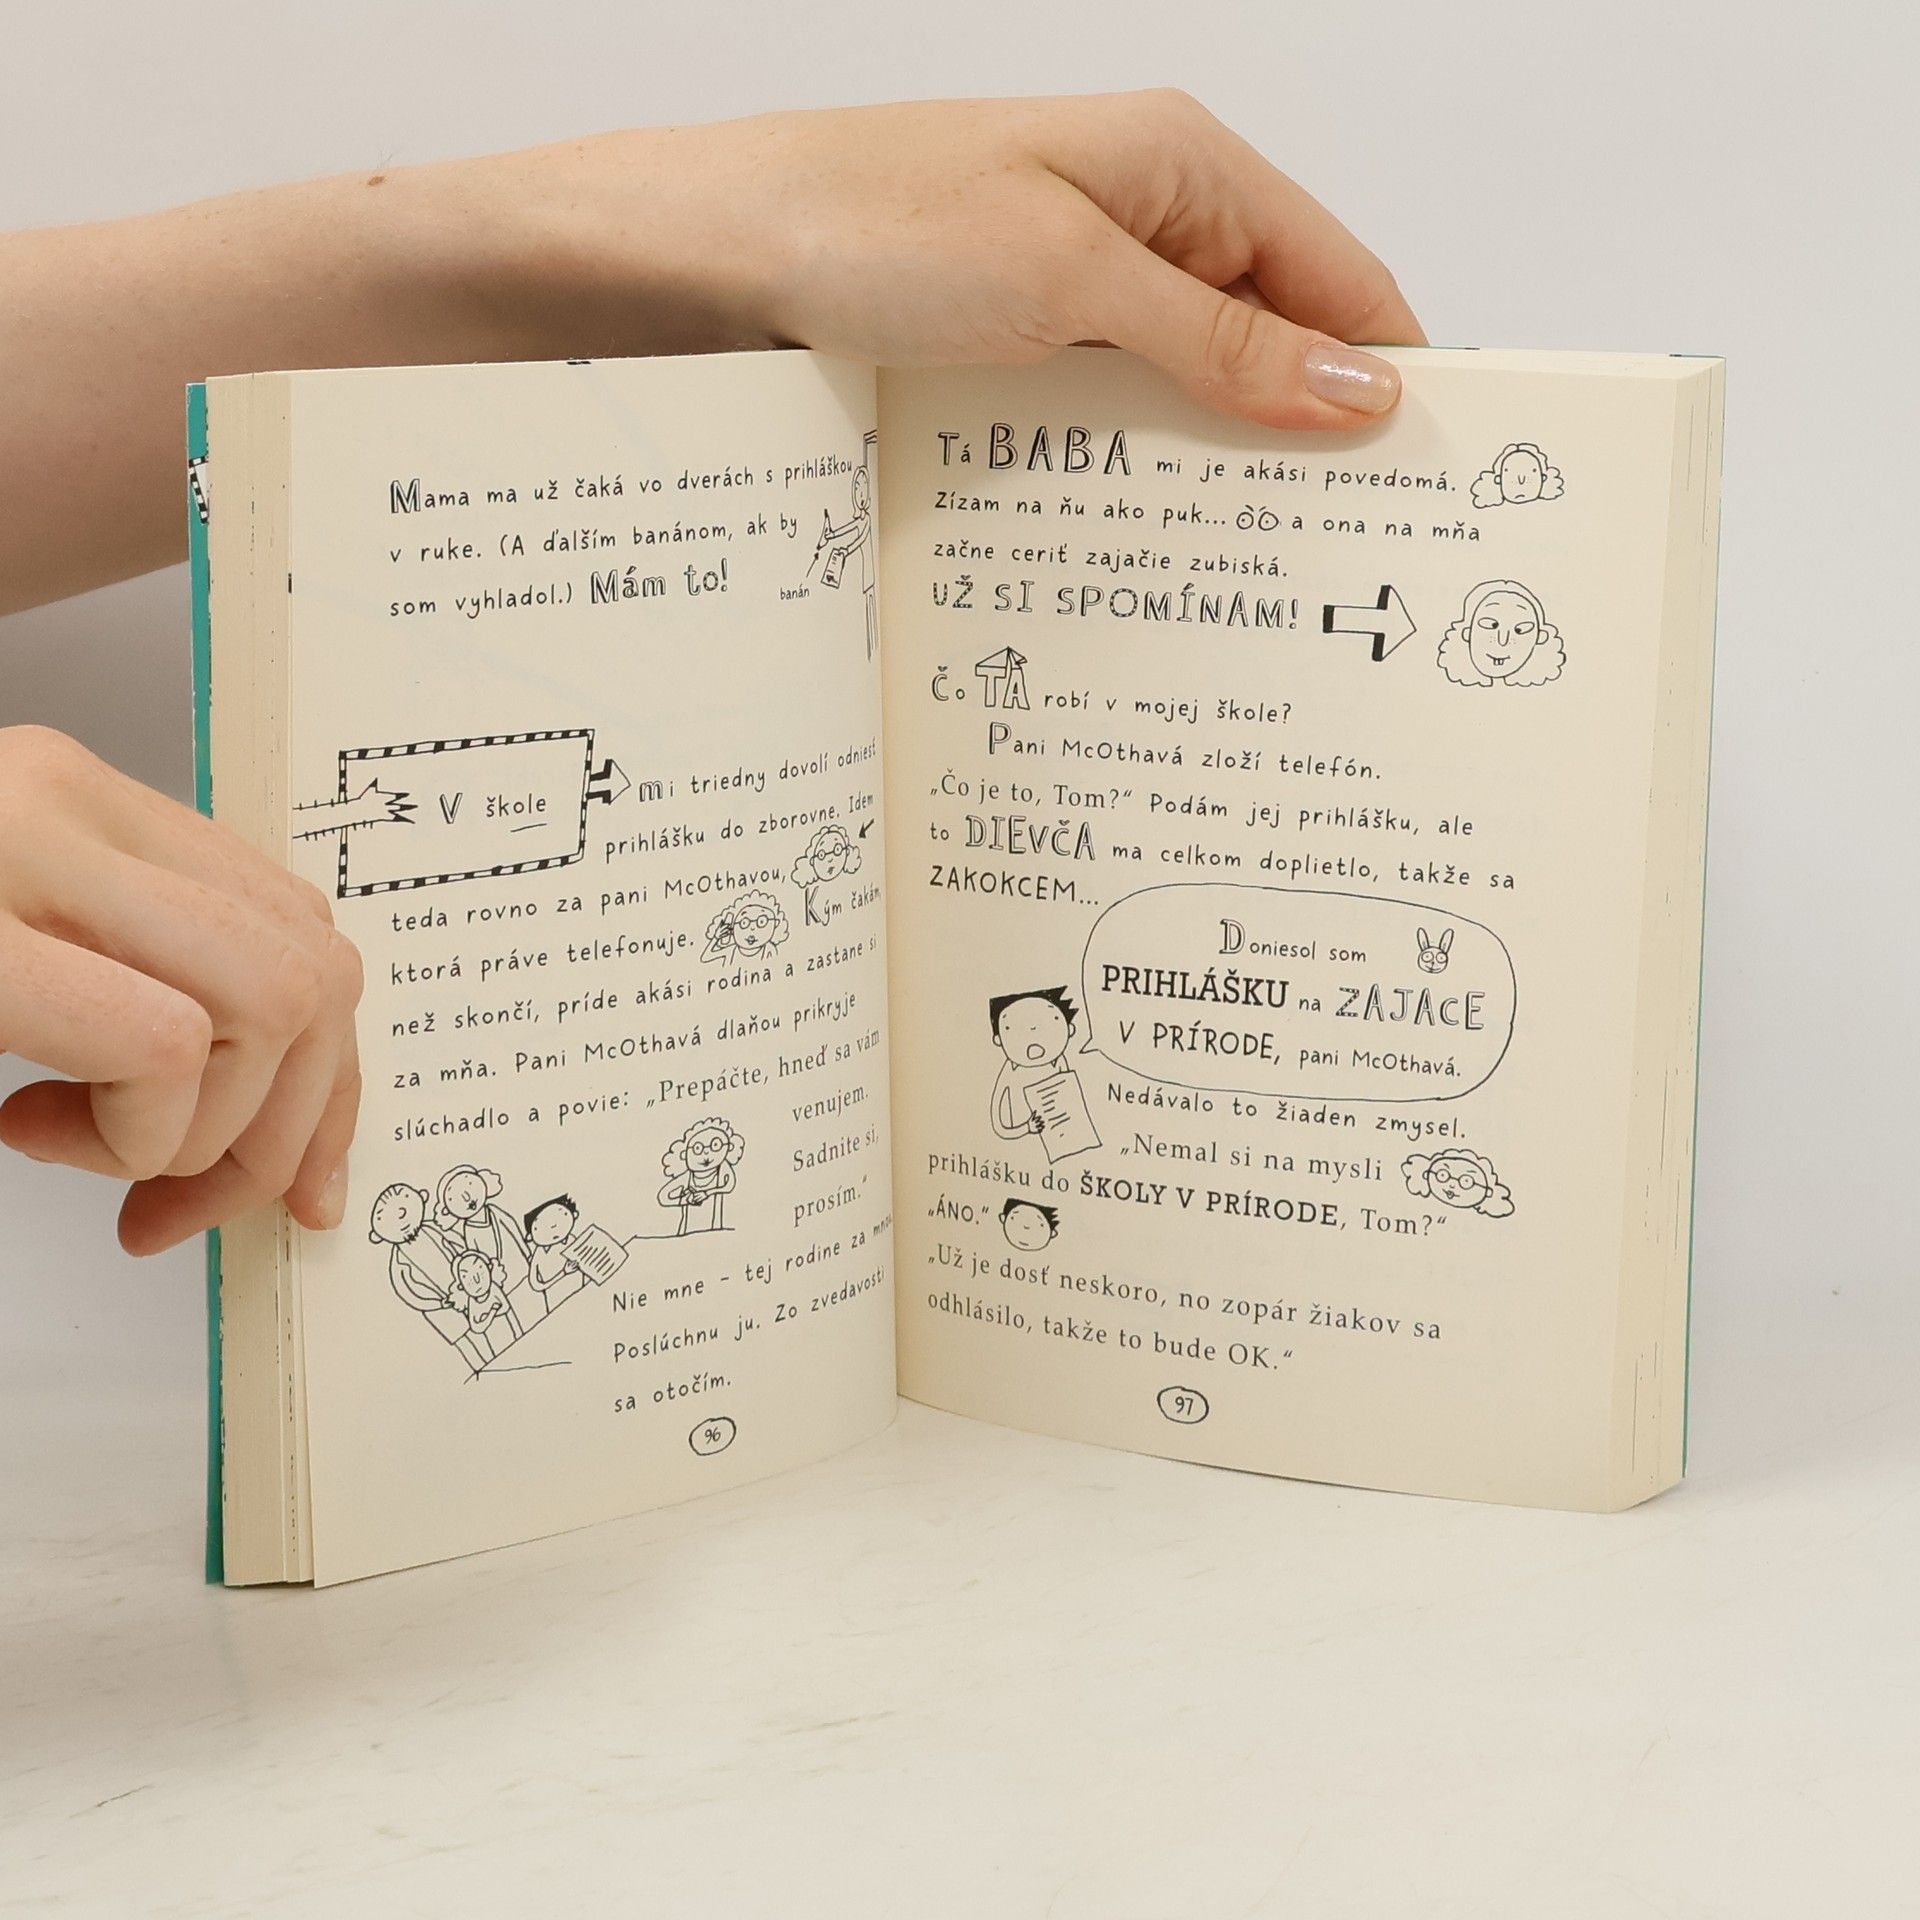 Mama ma už čaká vo dverách s prihláškou
v ruke. (A ďalším banánom, ak by
som vyhladol.) Mám to!
banán
V škole
mi triedny dovolí odniesť
prihlášku do zborovne. Idem
teda rovno za pani McOthavou,
ktorá práve telefonuje. Kým čakám,
než skončí, príde akási rodina a zastane si
za mňa. Pani McOthavá dlaňou prikryje
slúchadlo a povie: „Prepáčte, hneď sa vám
venujem.
Sadnite si,
prosím.“
Nie mne – tej rodine za mnou.
Poslúchnu ju. Zo zvedavosti
sa otočím.
96
Tá BABA mi je akási povedomá.
Zízam na ňu ako puk... a ona na mňa
začne ceriť zajačie zubiská.
UŽ SI SPOMÍNAM!
Čo TÁ robí v mojej škole?
Pani McOthavá zloží telefón.
„Čo je to, Tom?“ Podám jej prihlášku, ale
to DIEVČA ma celkom doplietlo, takže sa
ZAKOKCEM...
Doniesol som
PRIHLÁŠKU na ZAJACE
V PRÍRODE, pani McOthavá.
Nedávalo to žiaden zmysel.
„Nemal si na mysli
prihlášku do ŠKOLY V PRÍRODE, Tom?“
„ÁNO.“
„Už je dosť neskoro, no zopár žiakov sa
odhlásilo, takže to bude OK.“
97